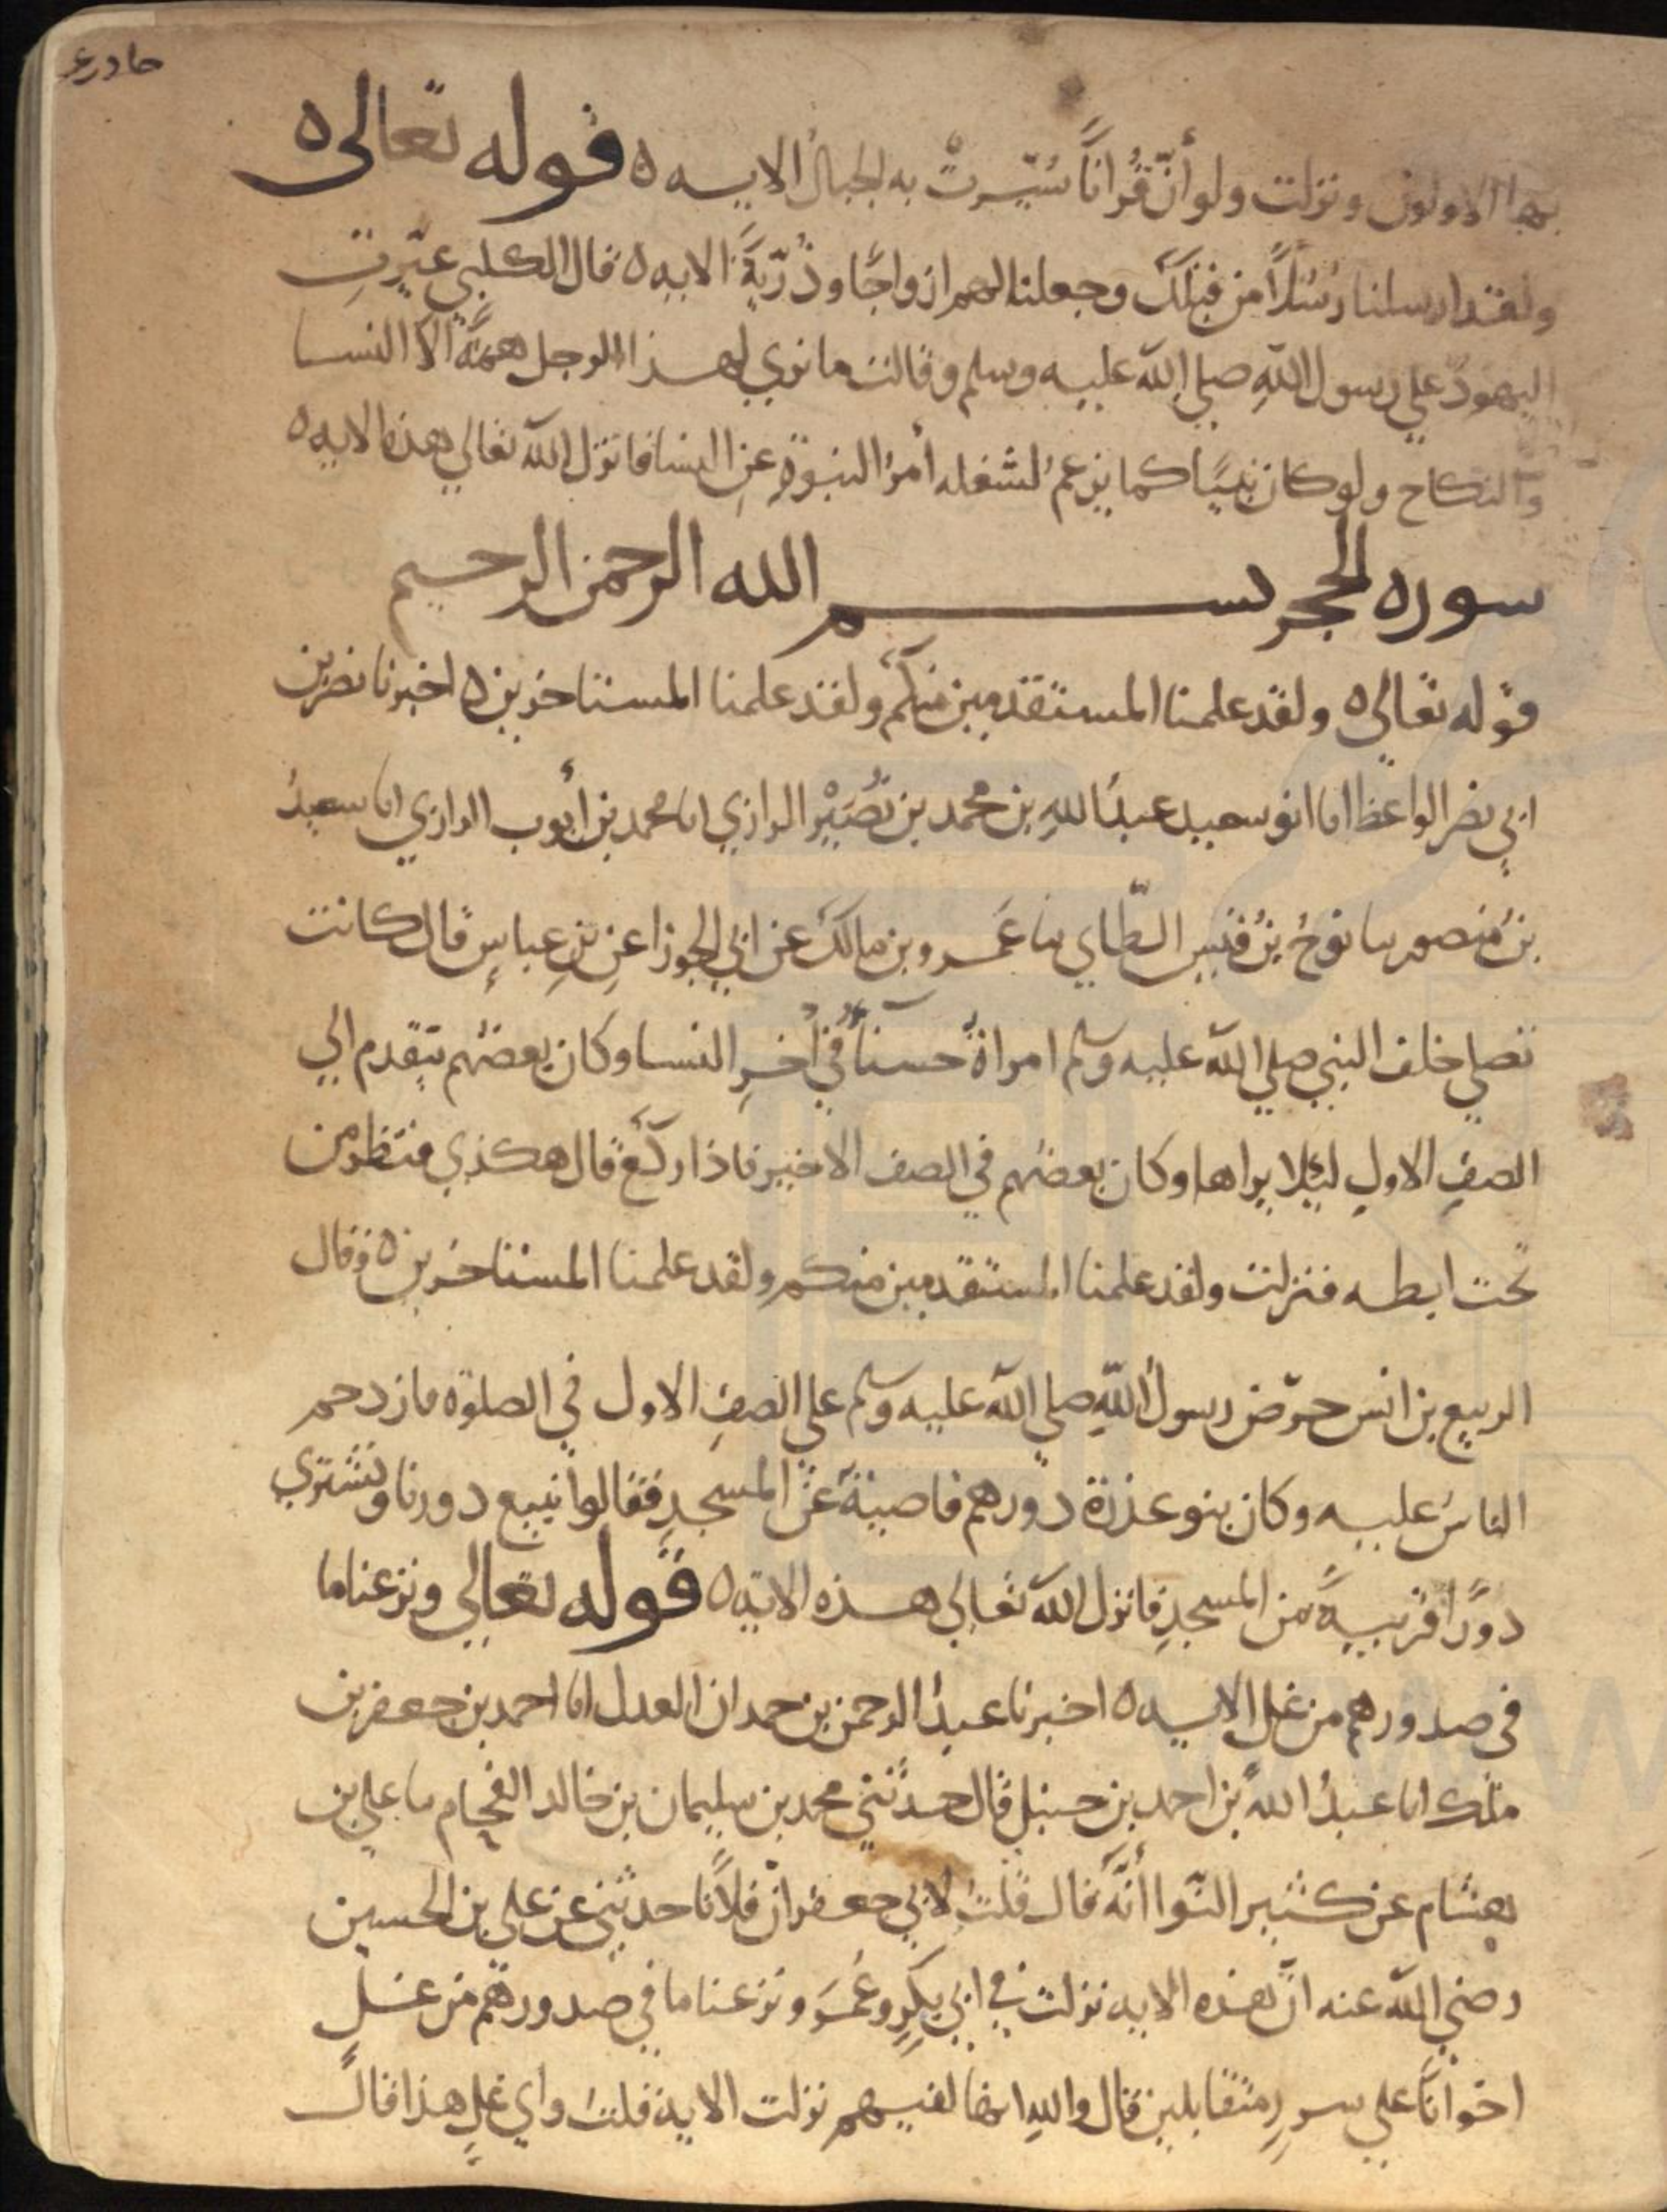 حادي عر
بها الاولون ونزلت ولو أنّ قُرانًا سُيّرتْ به الجبالُ الايه ٥ قوله تعالى ٥
ولقد ارسلنا رُسُلًا من قبلك وجعلنا لهم ازواجًا وذُرّيةً الايه ٥ قال الكلبي عيّرتِ
اليهودُ علي رسول اللهِ صلي الله عليه وسلم وقالت ما نري لهذا الرجل همةً الّا النسا
والنكاح ولو كان نبيًا كما يزعمُ لشغله أمرُ النبوةِ عنِ النسا فانزل الله تعالي هذه الايه ٥
سوره الحجر بسم الله الرحمن الرحيم
قوله تعالى ٥ ولقد علمنا المستقدمين منكم ولقد علمنا المستاخرين ٥ اخبرنا نصر بن
ابي نصر الواعظ انا ابو سعيد عبدُ اللهِ بن محمد بن نُصَيْر الرازي انا محمد بن أيوب الرازي انا سعيدُ
بنُ منصور نا نوحُ بنُ قيس الطّاي نا عَمرو بن مالك عن ابي الجوزا عنِ بنِ عباسٍ قال كانت
تصلي خلف النبي صلي الله عليه وسلم امراةٌ حسنآُ في أخرِ النسا وكان بعضهم يتقدم الي
الصفِ الاولِ ليلا يراها وكان بعضهم في الصف الاخير فاذا ركع قال هكذي فنظر من
تحت ابطه فنزلت ولقد علمنا المستقدمين منكم ولقد علمنا المستاخرين ٥ وقال
الربيع بن انس حرّض رسولُ اللهِ صلي الله عليه وسلم علي الصفِ الاول في الصلوة فازدحم
الناسُ عليه وكان بنو عذرة دورهم قاصيةً عن المسجدِ فقالوا نبيع دورنا ونشتري
دورًا قريبةً من المسجدِ فانزل الله تعالي هذه الايه ٥ قوله تعالي ونزعنا ما
في صدورهم من غلٍ الايه ٥ اخبرنا عبدُ الرحمن بن حمدان العدل انا احمد بن جعفر بن
ملك انا عبدُ الله بن احمد بن حنبل قال حدثني محمد بن سليمان بن خالد الفحام نا علي بن
هشام عن كثير النّوا أنّه قال قلتُ لابي جعفر انّ فلانًا حدثني عن علي بن الحسين
رضي الله عنه انّ هذه الايه نزلت في ابي بكرٍ وعُمَرَ ونزعنا ما في صدورهم من غلٍ
اخوانًا علي سررٍ متقابلين قال واللهِ انها لفيهم نزلت الايه قلتُ واي غلٍ هذا قال